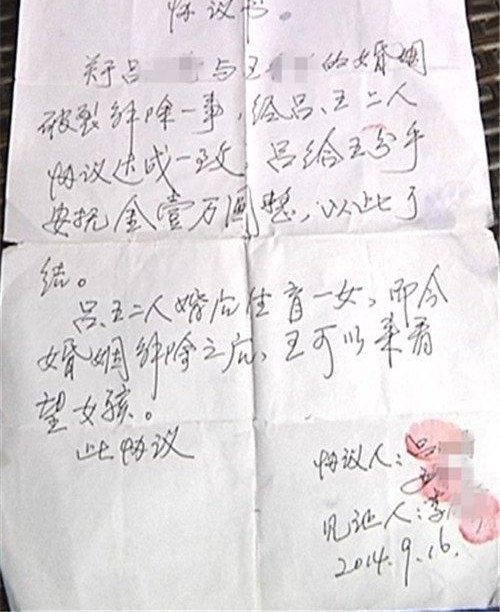 协议书。
关于吕与王的婚姻
破裂解除一事,经吕、王二人
协议达成一致,吕给王分手
安抚金壹万圆整,以此了
结。
吕、王二人婚后生育一女,即今
婚姻解除之后,王可以来看
望女孩。
此协议
协议人:吕
王
见证人:李
2014.9.16.